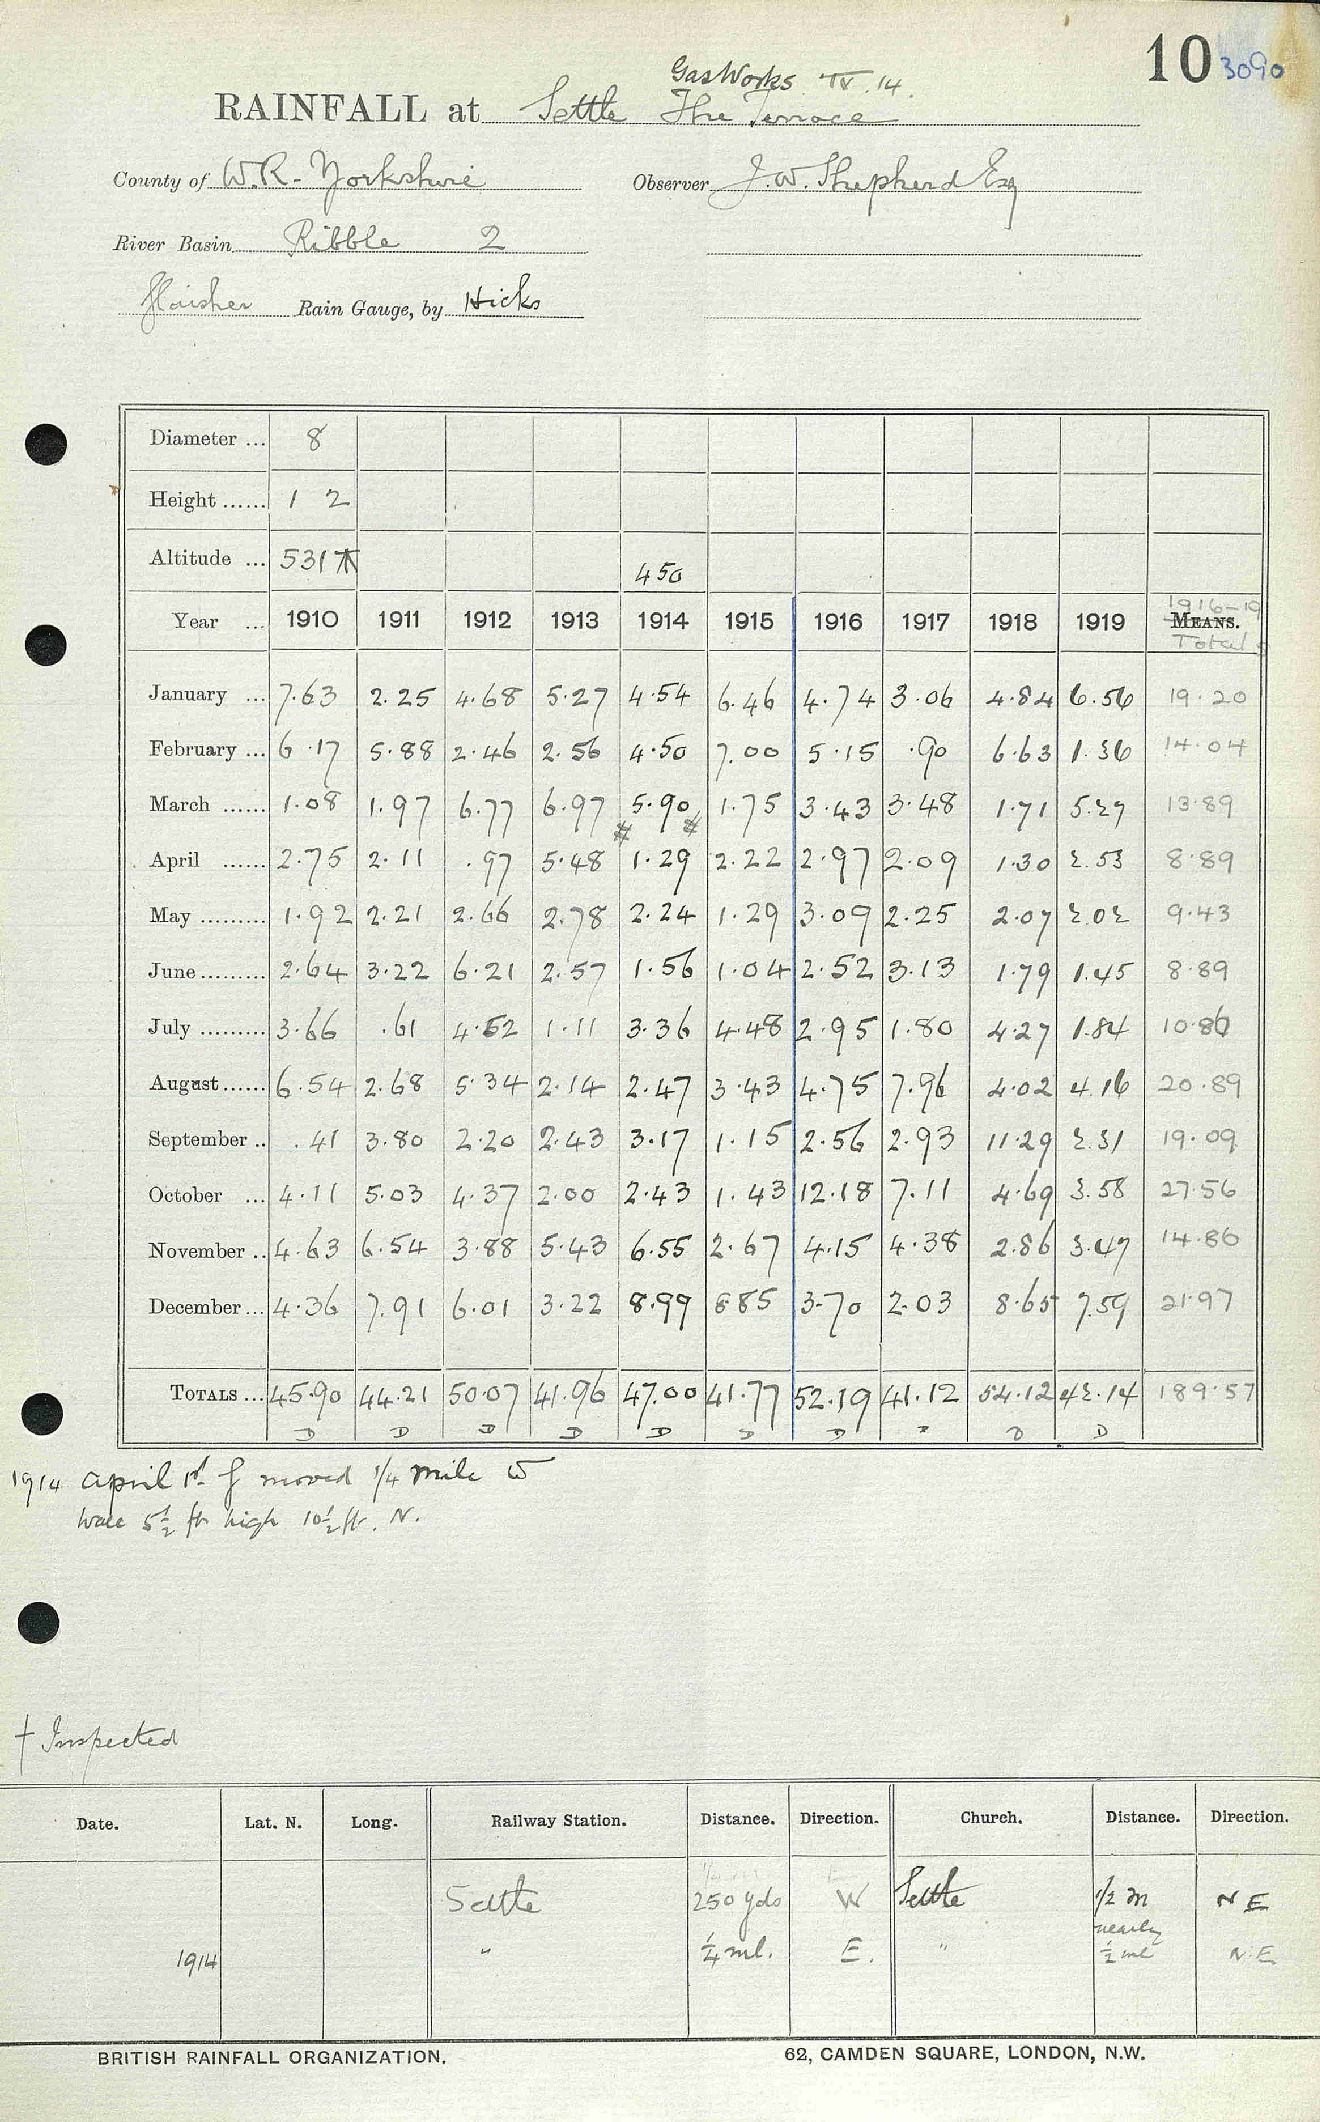 10 3090
Gas Works IV.14.
RAINFALL at Settle The Terrace
County of W.R. Yorkshire Observer J.W. Shepherd Esq
River Basin Ribble 2
Glaisher Rain Gauge, by Hicks
Diameter ... 8
Height ...... 1 2
Altitude ... 531 450
1916-19
Year ... 1910 1911 1912 1913 1914 1915 1916 1917 1918 1919 MEANS.
Totals
January ... 7.63 2.25 4.68 5.27 4.54 6.46 4.74 3.06 4.84 6.56 19.20
February ... 6.17 5.88 2.46 2.56 4.50 7.00 5.15 .90 6.63 1.36 14.04
March ...... 1.08 1.97 6.77 6.97 5.90 1.75 3.43 3.48 1.71 5.27 13.89
April ...... 2.75 2.11 .97 5.48 1.29 2.22 2.97 2.09 1.30 2.53 8.89
May ......... 1.92 2.21 2.66 2.78 2.24 1.29 3.09 2.25 2.07 2.02 9.43
June ......... 2.64 3.22 6.21 2.57 1.56 1.04 2.52 3.13 1.79 1.45 8.89
July ......... 3.66 .61 4.52 1.11 3.36 4.48 2.95 1.80 4.27 1.84 10.86
August ...... 6.54 2.68 5.34 2.14 2.47 3.43 4.75 7.96 4.02 4.16 20.89
September .. .41 3.80 2.20 2.43 3.17 1.15 2.56 2.93 11.29 2.31 19.09
October ... 4.11 5.03 4.37 2.00 2.43 1.43 12.18 7.11 4.69 3.58 27.56
November .. 4.63 6.54 3.88 5.43 6.55 2.67 4.15 4.38 2.86 3.47 14.86
December ... 4.36 7.91 6.01 3.22 8.99 8.85 3.70 2.03 8.65 7.59 21.97
TOTALS ... 45.90 44.21 50.07 41.96 47.00 41.77 52.19 41.12 54.12 42.14 189.57
D D D D D D D D D
1914 April 1st. G moved 1/4 mile W
Wall 5½ ft high 10½ ft. N.
† Inspected
Date. Lat. N. Long. Railway Station. Distance. Direction. Church. Distance. Direction.
Settle 250 yds W Settle 1/2 m NE
1914 " ¼ ml. E. " nearly ½ ml N.E
BRITISH RAINFALL ORGANIZATION. 62, CAMDEN SQUARE, LONDON, N.W.